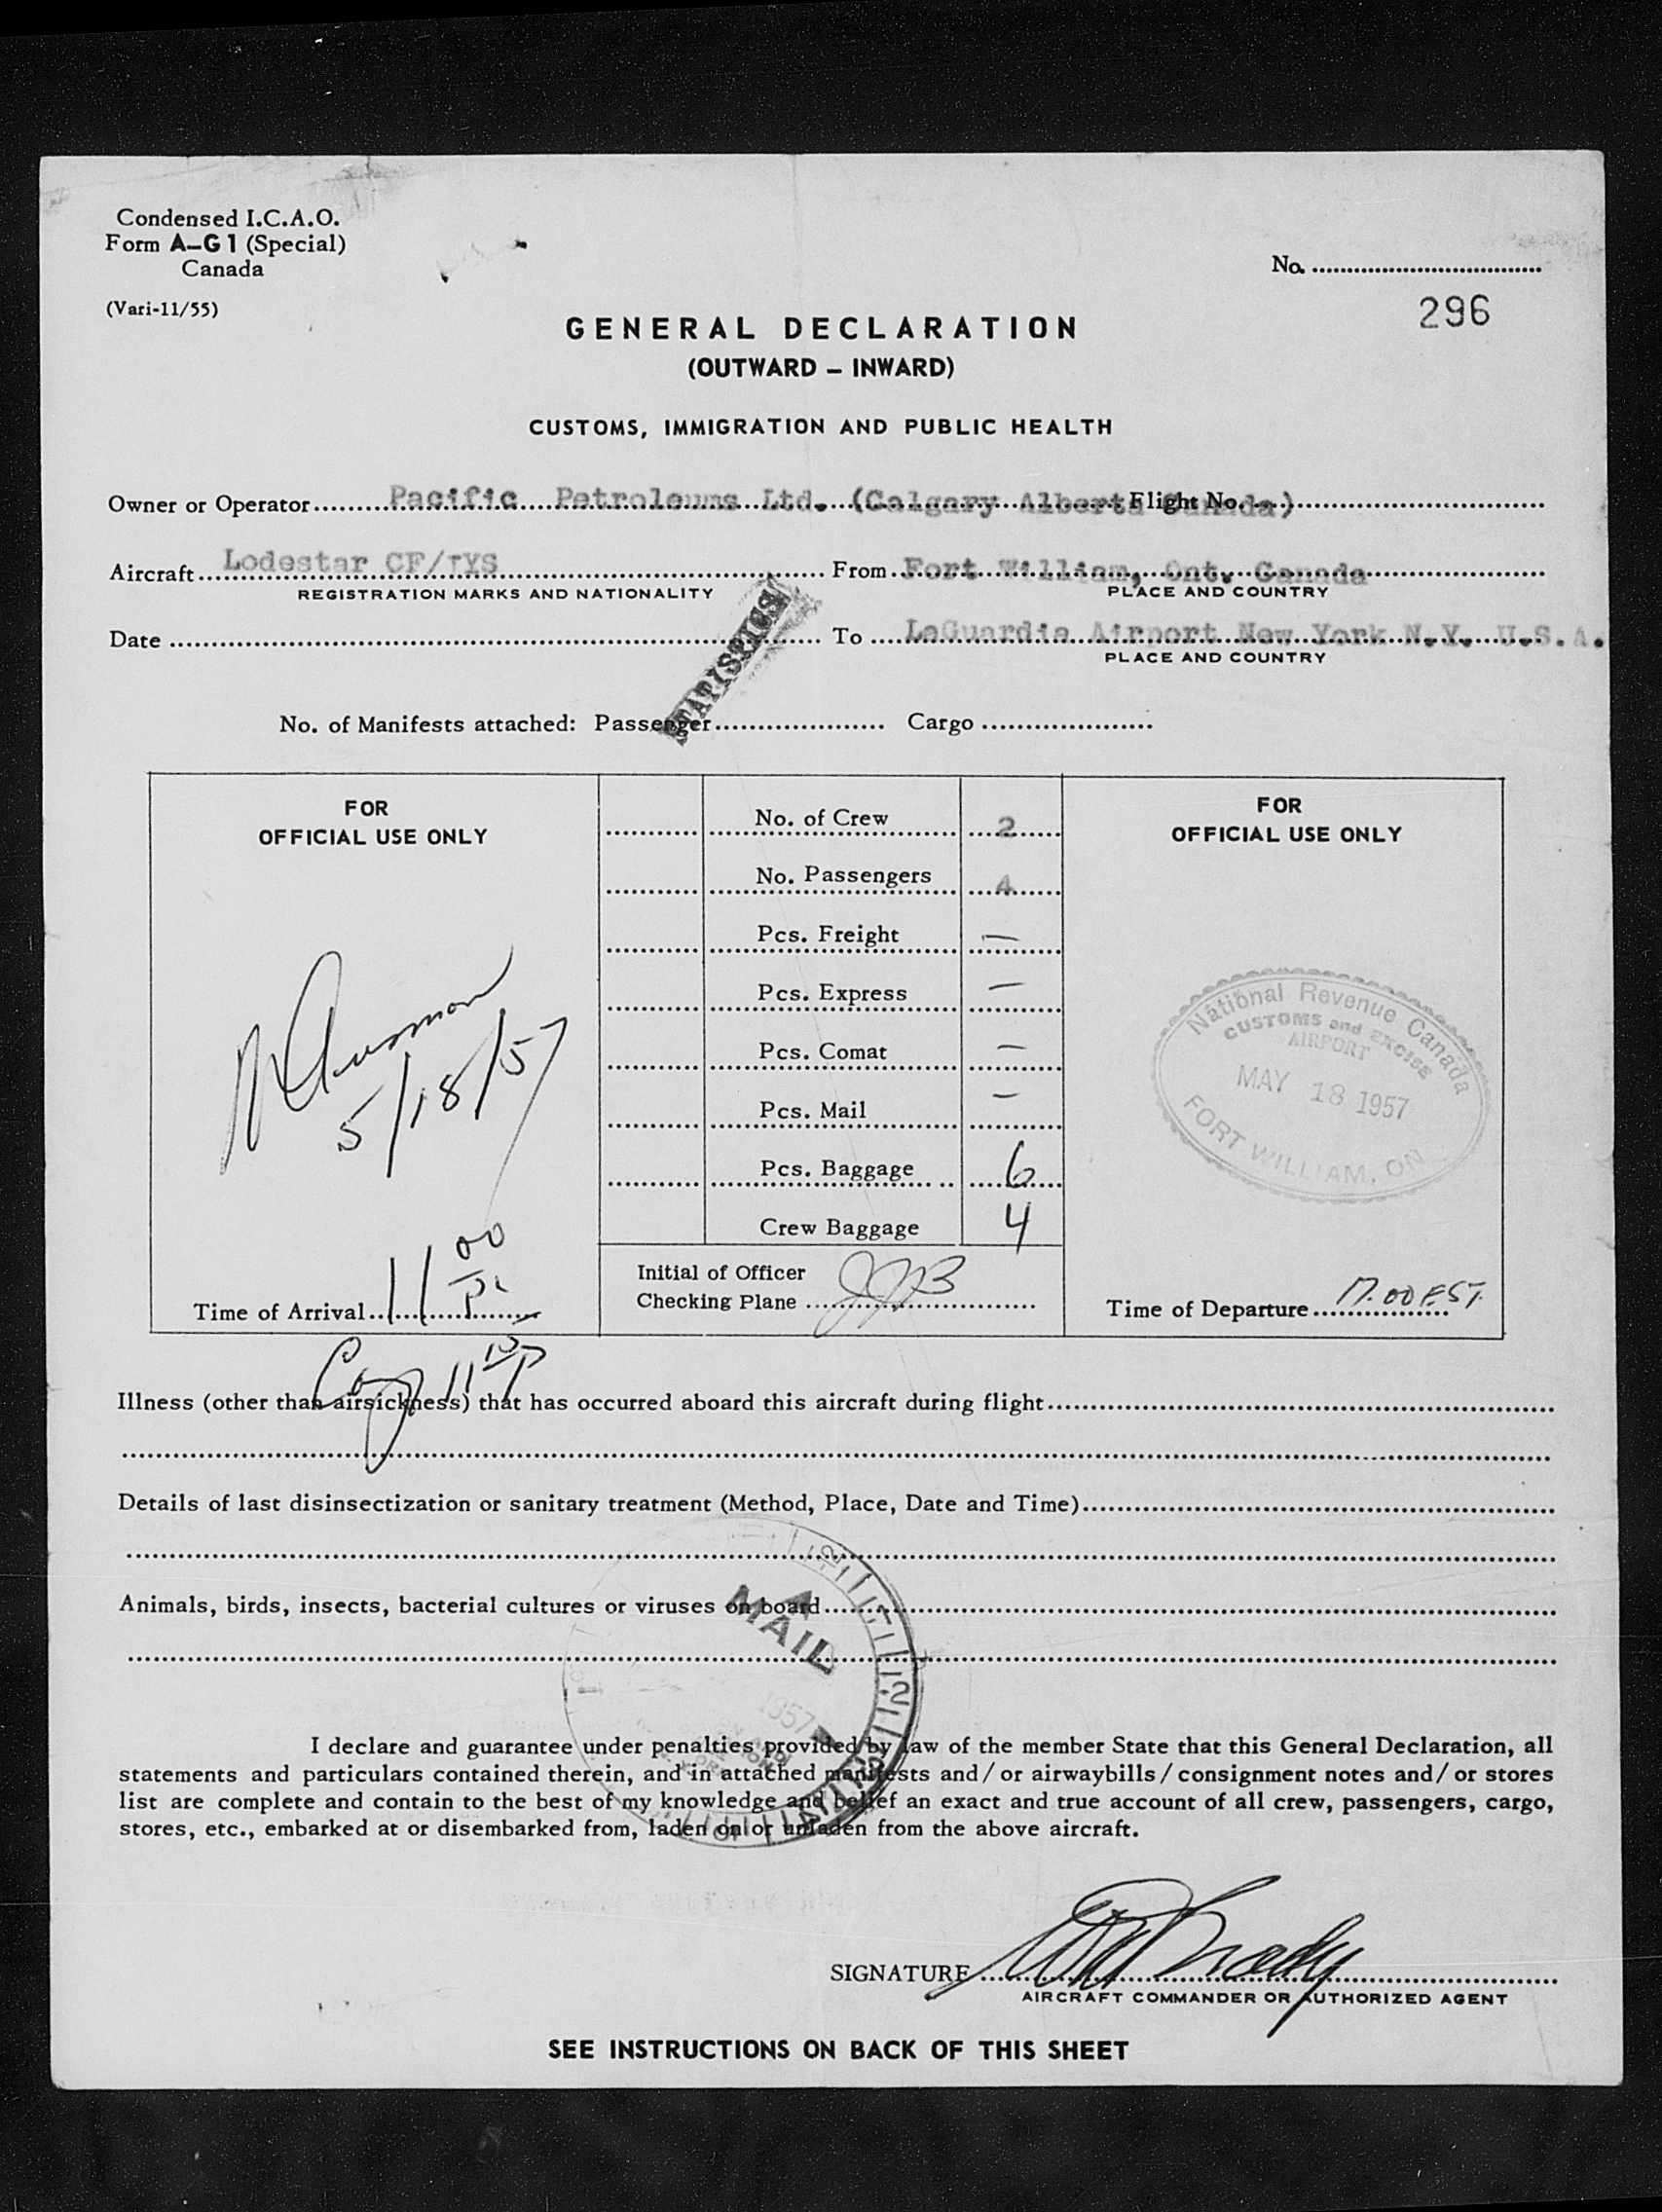 Condensed I.C.A.O.
Form A-G1 (Special)
Canada
(Vari-11/55)
No.
296
GENERAL DECLARATION
(OUTWARD – INWARD)
CUSTOMS, IMMIGRATION AND PUBLIC HEALTH
Owner or Operator Pacific Petroleums Ltd. (Calgary Alberta Canada) Flight No.
Aircraft Lodestar From Fort William, Ont. Canada
REGISTRATION MARKS AND NATIONALITY PLACE AND COUNTRY
Date To LaGuardia Airport New York N.Y. U.S.A.
PLACE AND COUNTRY
STATISTICS
No. of Manifests attached: Passenger Cargo
FOR
OFFICIAL USE ONLY
5/18/57
Time of Arrival 11 00
No. of Crew 2
No. Passengers 4
Pcs. Freight —
Pcs. Express —
Pcs. Comat —
Pcs. Mail —
Pcs. Baggage 6
Crew Baggage 4
Initial of Officer
Checking Plane JJB
FOR
OFFICIAL USE ONLY
National Revenue Canada
CUSTOMS and EXCISE
AIRPORT
MAY 18 1957
FORT WILLIAM, ON
Time of Departure 17.00 EST.
Illness (other than airsickness) that has occurred aboard this aircraft during flight
Details of last disinsectization or sanitary treatment (Method, Place, Date and Time)
Animals, birds, insects, bacterial cultures or viruses on board
MAIL
1957
I declare and guarantee under penalties provided by law of the member State that this General Declaration, all
statements and particulars contained therein, and in attached manifests and/or airwaybills/consignment notes and/or stores
list are complete and contain to the best of my knowledge and belief an exact and true account of all crew, passengers, cargo,
stores, etc., embarked at or disembarked from, laden on or unladen from the above aircraft.
SIGNATURE
AIRCRAFT COMMANDER OR AUTHORIZED AGENT
SEE INSTRUCTIONS ON BACK OF THIS SHEET